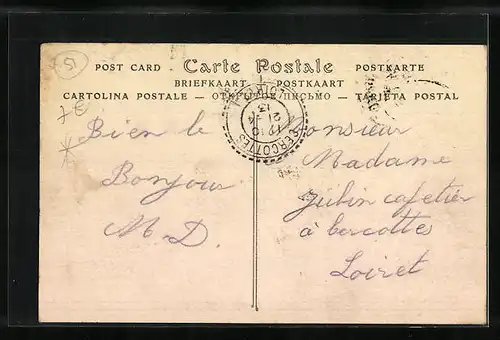 51
POST CARD Carte Postale POSTKARTE
BRIEFKAART — POSTKAART
CARTOLINA POSTALE — ОТКРЫТОЕ ПИСЬМО — TARJETA POSTAL
7€
CERCOTTES
12 10
21 -4
13
Bien le
Bonjour
M. D.
Monsieur
Madame
Jubin cafetier
à bercottes
Loiret